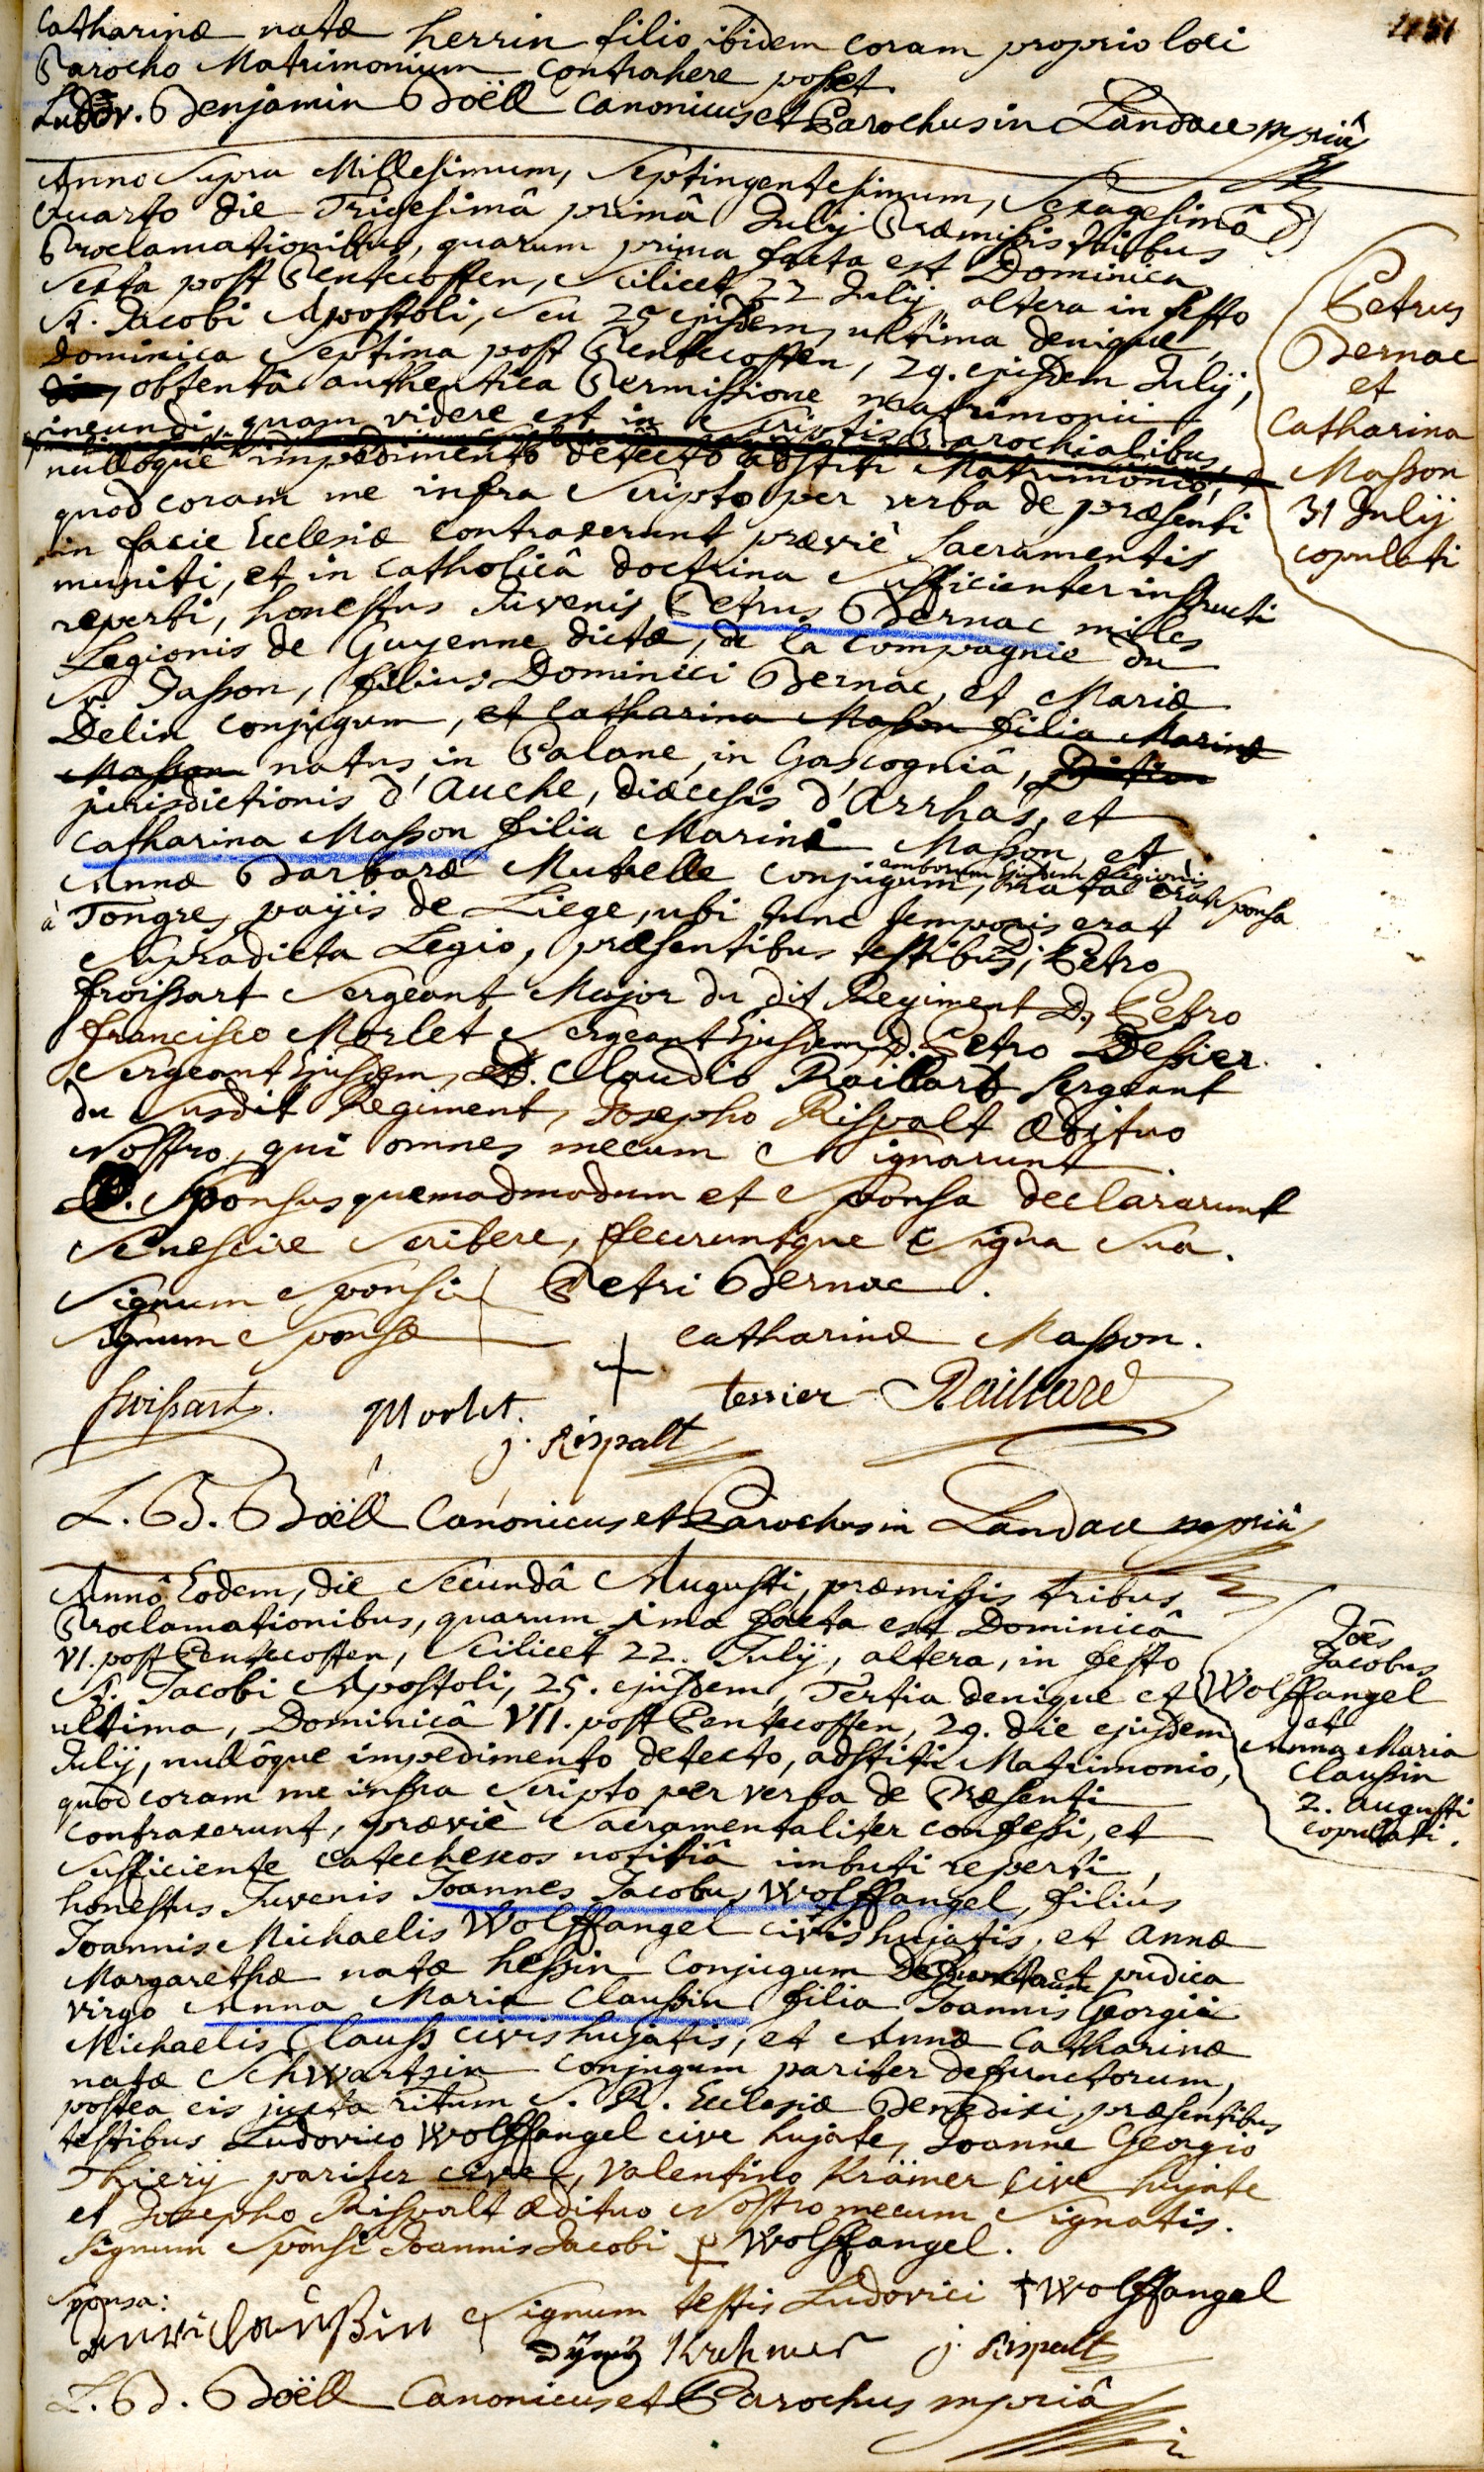 Catharinæ natæ herrin filio ibidem coram proprio loci
Parocho Matrimonium Contrahere posset
Ludov. Benjamin Boëll Canonicus et Parochus in Landau mpriâ
Anno supra Millesimum, Septingentesimum, Sexagesimô
Quarto die Trigesimâ primâ Julij Præmissis tribus
Proclamationibus, quarum prima facta est Dominica
Sexta post Pentecosten, scilicet 22 Julij altera in festo
St. Jacobi Apostoli, seu 25 ejusdem, ultima denique
Dominica Septima post Pentecosten, 29. ejusdem Julij,
obtentâ authentica Permissione matrimonii
ineundi, quam videre est in Scriptis Parochialibus,
nullôque impedimento detecto adstiti Matrimonio,
quod coram me infra Scripto per verba de præsenti
in facie Ecclesiæ contraxerunt præviè Sacramentis
muniti, et in Catholicâ doctrina Sufficienter instructi
reperti, honestus Juvenis Petrus Bernac miles
Legionis de Guyenne dictæ, de la Compagnie du
Sr. Jasson, filius Dominici Bernac, et Mariæ
Delin Conjugum, et Catharina Masson filia Marini
Masson natus in Palane, in Gascogniâ,
jurisdictionis d'Auche, diœcesis d'Arrhas, et
Catharina Masson filia Marini Masson et
Annæ Barbaræ Mutelle Conjugum, amborum ejusdem Legionis nata erat sponsa
à Tongre, payis de Liege, ubi tunc temporis erat
Supradicta Legio, præsentibus testibus, Petro
froissart Sergeant Major du dit Regiment D. Petro
francisco Morlet Sergeant ejusdem, D. Petro Dessier
Sergeant ejusdem, D. Claudio Raillard Sergeant
du Susdit Regiment, Josepho Rispalt ædituo
Nostro, qui omnes mecum Signarunt.
Sponsus quemadmodum et Sponsa declararunt
Se nescire Scribere, feceruntque Signa Sua.
Signum Sponsi Petri Bernac.
Signum Sponsæ + Catharinæ Masson.
froissart. Morlet. tessier Raillard
j. Rispalt
L. B. Boëll Canonicus et Parochus in Landau mpriâ
Annô Eodem, die Secundâ Augusti, præmissis tribus
Proclamationibus, quarum ima facta est Dominicâ
VI. post Pentecosten, Scilicet 22. Julij, altera, in festo
St. Jacobi Apostoli, 25. ejusdem, Tertia denique et
ultima, Dominicâ VII. post Pentecosten, 29. die ejusdem
Julij, nullôque impedimento detecto, adstiti Matrimonio,
quod coram me infra Scripto per verba de Præsenti
contraxerunt, præviè Sacramentaliter confessi, et
Sufficiente catecheseos notitiâ imbuti reperti,
honestus Juvenis Joannes Jacobus Wolffangel, filius
Joannis Michaelis Wolffangel civis hujatis, et Annæ
Margarethæ natæ hessin Conjugum Defunctorum et pudica
virgo Anna Maria Claussin filia Joannis Georgii
Michaelis Clauss civis hujatis, et Annæ Catharinæ
natæ Schwartzin Conjugum pariter defunctorum,
postea eis juxta ritum S. R. Ecclesiæ Benedixi, præsentibus
testibus Ludovico Wolffangel cive hujate, Joanne Georgio
Thierÿ pariter cive, Valentino Krämer Cive hujate
et Josepho Rispalt ædituo Nostro mecum Signatis.
Signum Sponsi Joannis Jacobi + Wolffangel.
Sponsa:
Signum testis Ludovici + Wolffangel
j. Rispalt
L. B. Boëll Canonicus et Parochus mpriâ
Petrus
Bernac
et
Catharina
Masson
31 Julij
copulati
Joes
Jacobus
Wolffangel
et
Anna Maria
Claussin
2. Augusti
copulati.